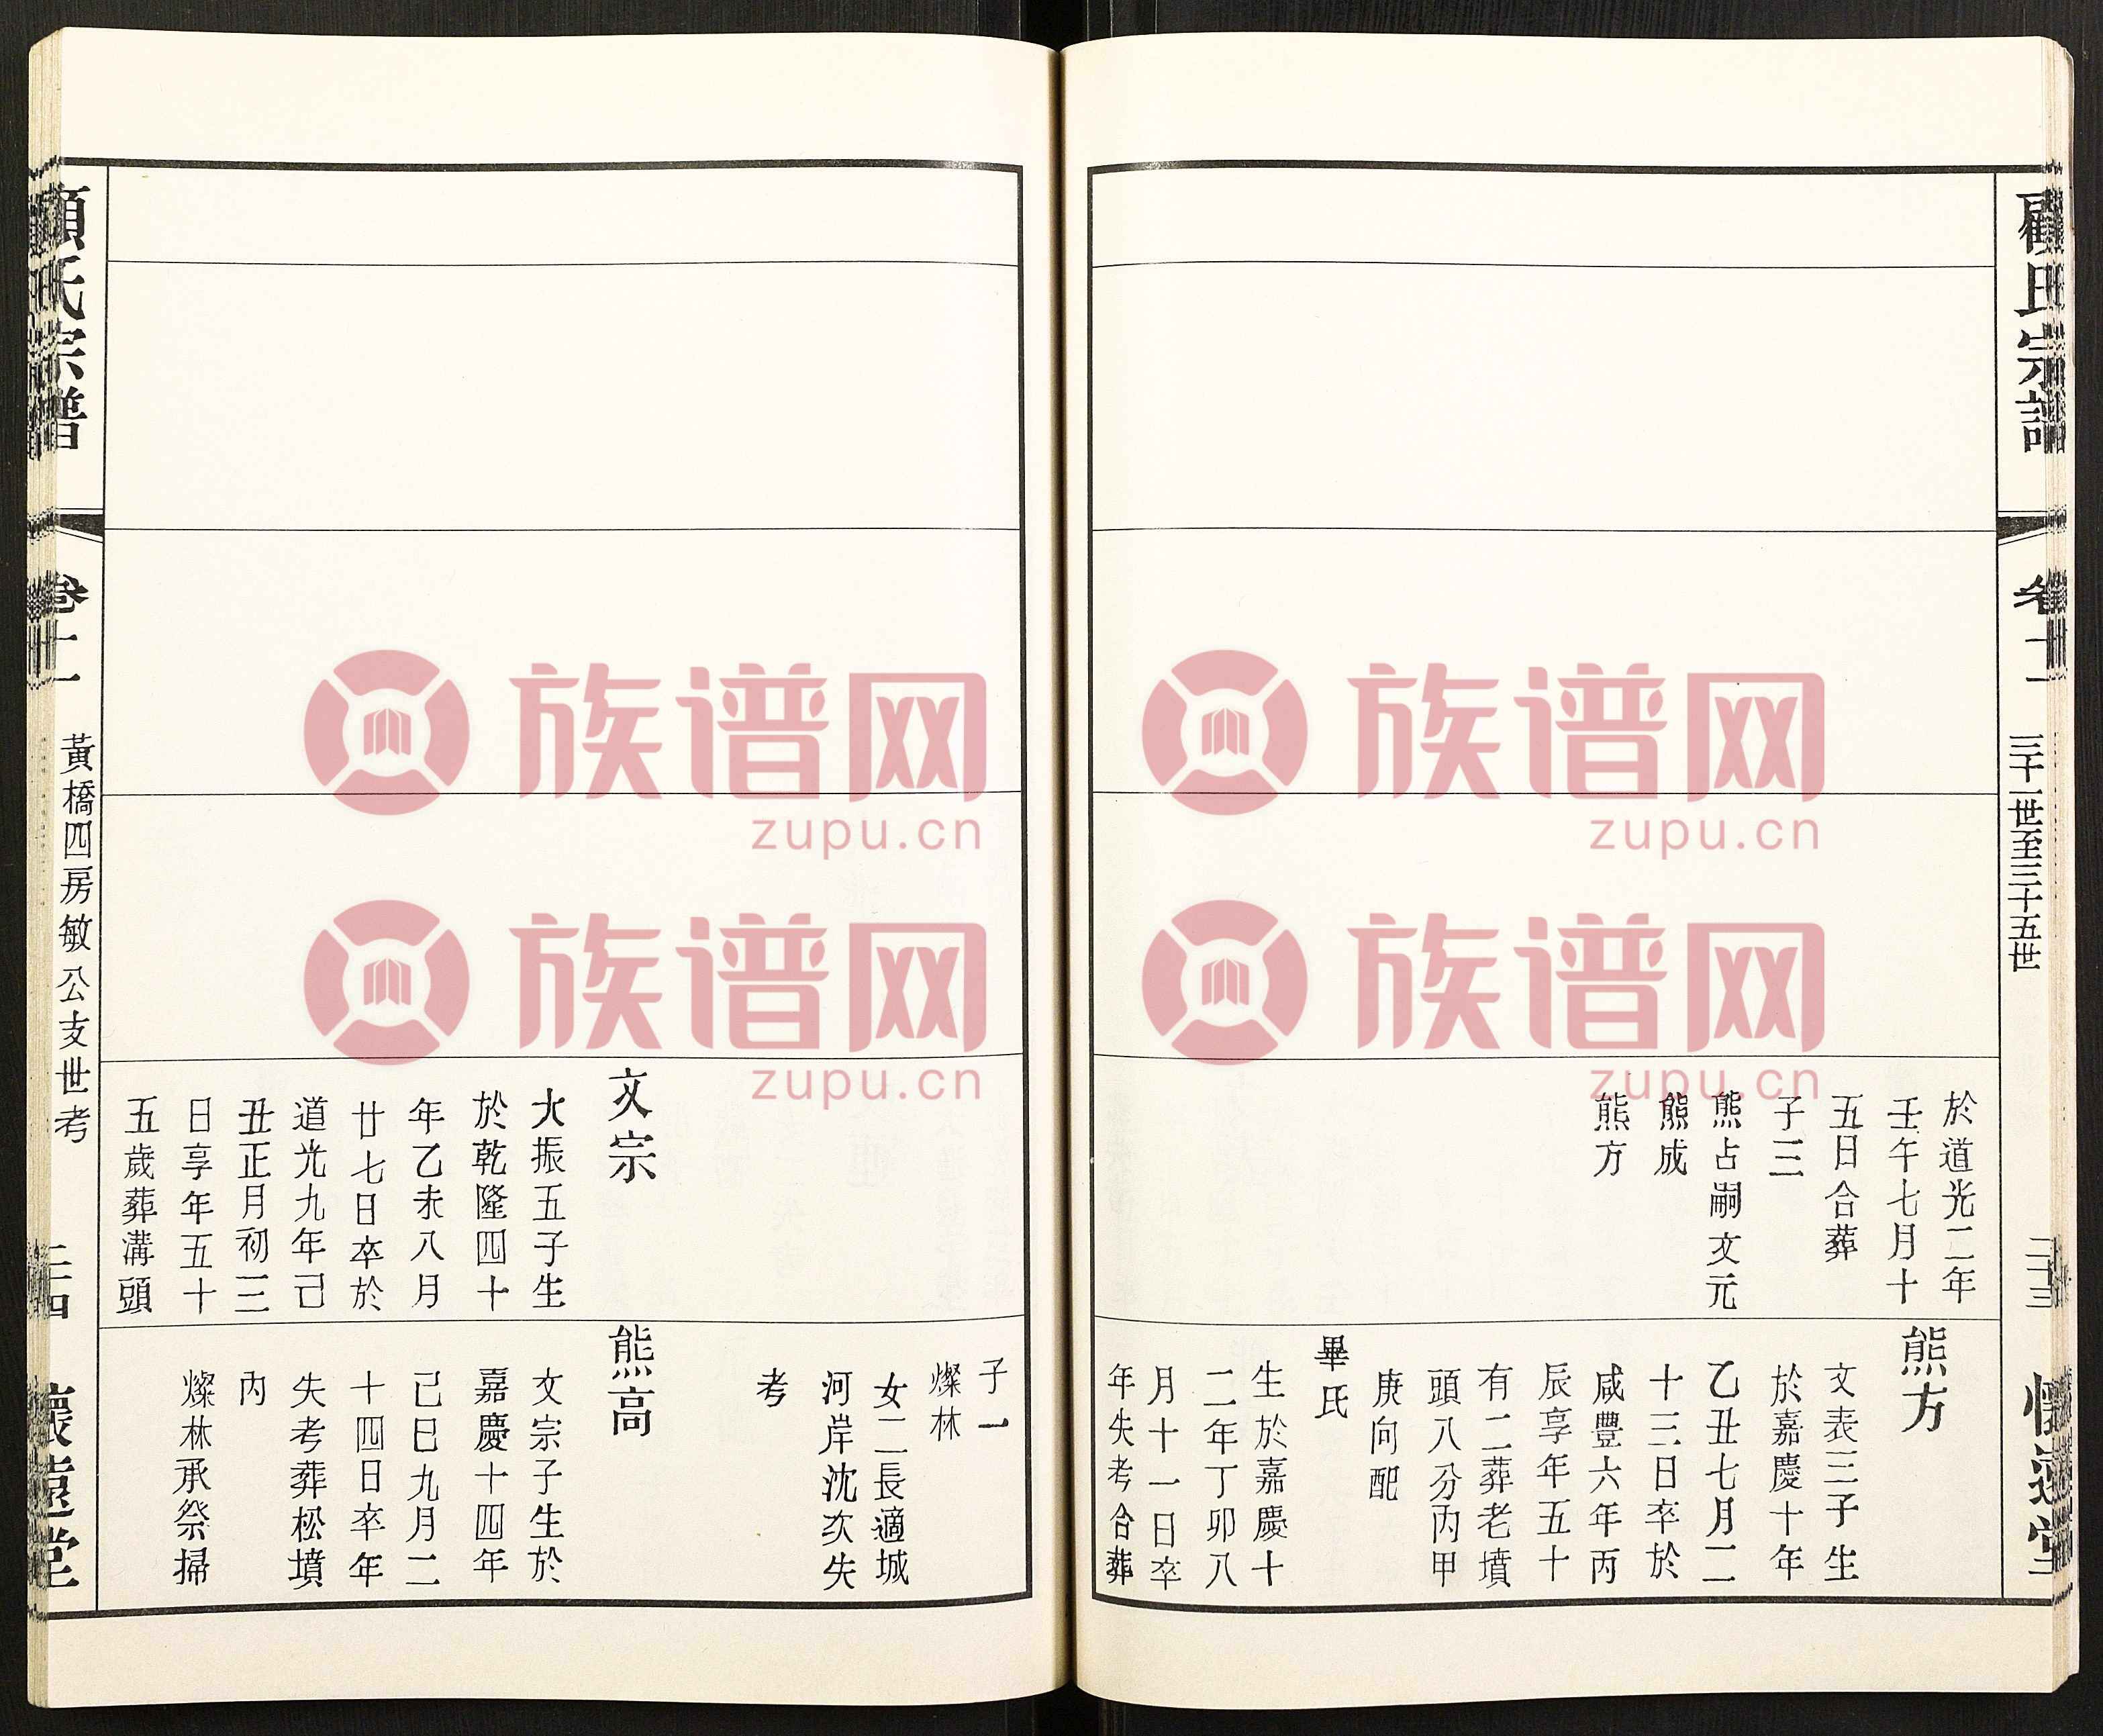 顧氏宗譜
卷十一
三十一世至三十五世
二十三
懷遠堂
於道光二年
壬午七月十
五日合葬
子三
熊占嗣文元
熊成
熊方
熊方
文表三子生
於嘉慶十年
乙丑七月二
十三日卒於
咸豐六年丙
辰享年五十
有二葬老墳
頭八分丙甲
庚向配
畢氏
生於嘉慶十
二年丁卯八
月十一日卒
年失考合葬
文宗
大振五子生
於乾隆四十
年乙未八月
廿七日卒於
道光九年己
丑正月初三
日享年五十
五歲葬溝頭
子一
燦林
女二長適城
河岸沈次失
考
熊高
文宗子生於
嘉慶十四年
己巳九月二
十四日卒年
失考葬松墳
內
燦林承祭掃
顧氏宗譜
卷十一
黃橋四房敏公支世考
二十四
懷遠堂
族谱网
zupu.cn
族谱网
zupu.cn
族谱网
zupu.cn
族谱网
zupu.cn